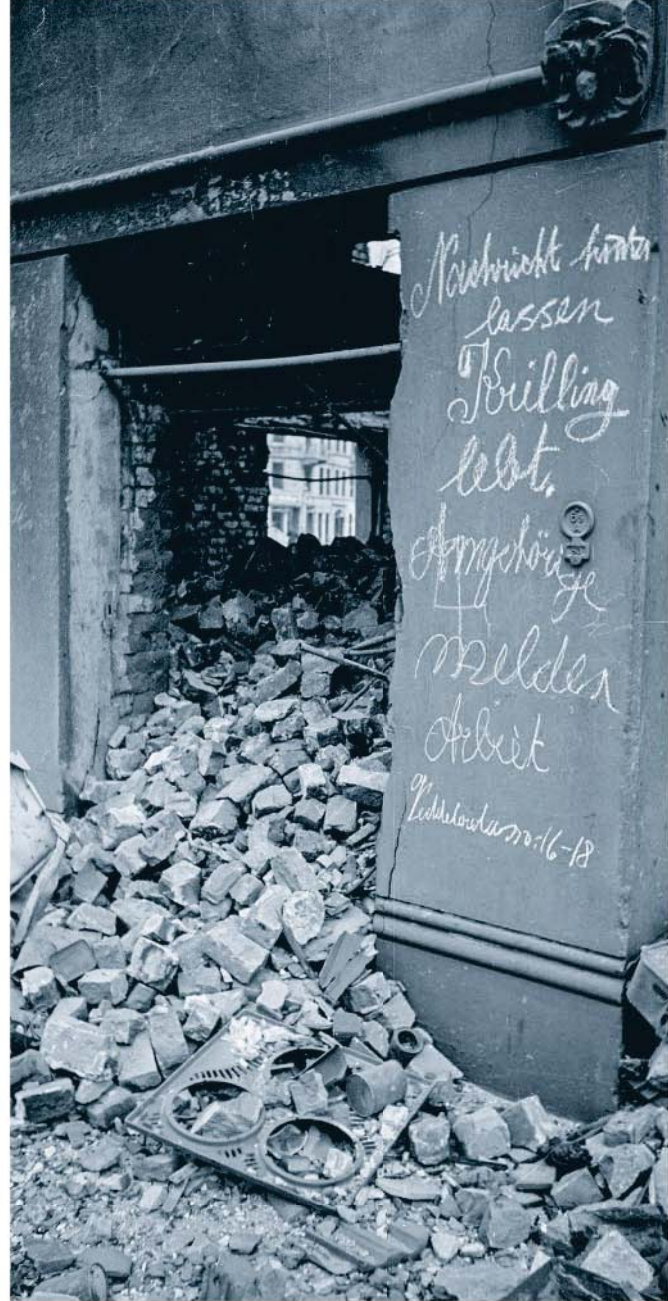 Nachricht hinter
lassen
Krilling
lebt.
Angehörige
melden
Arbeit
16-18